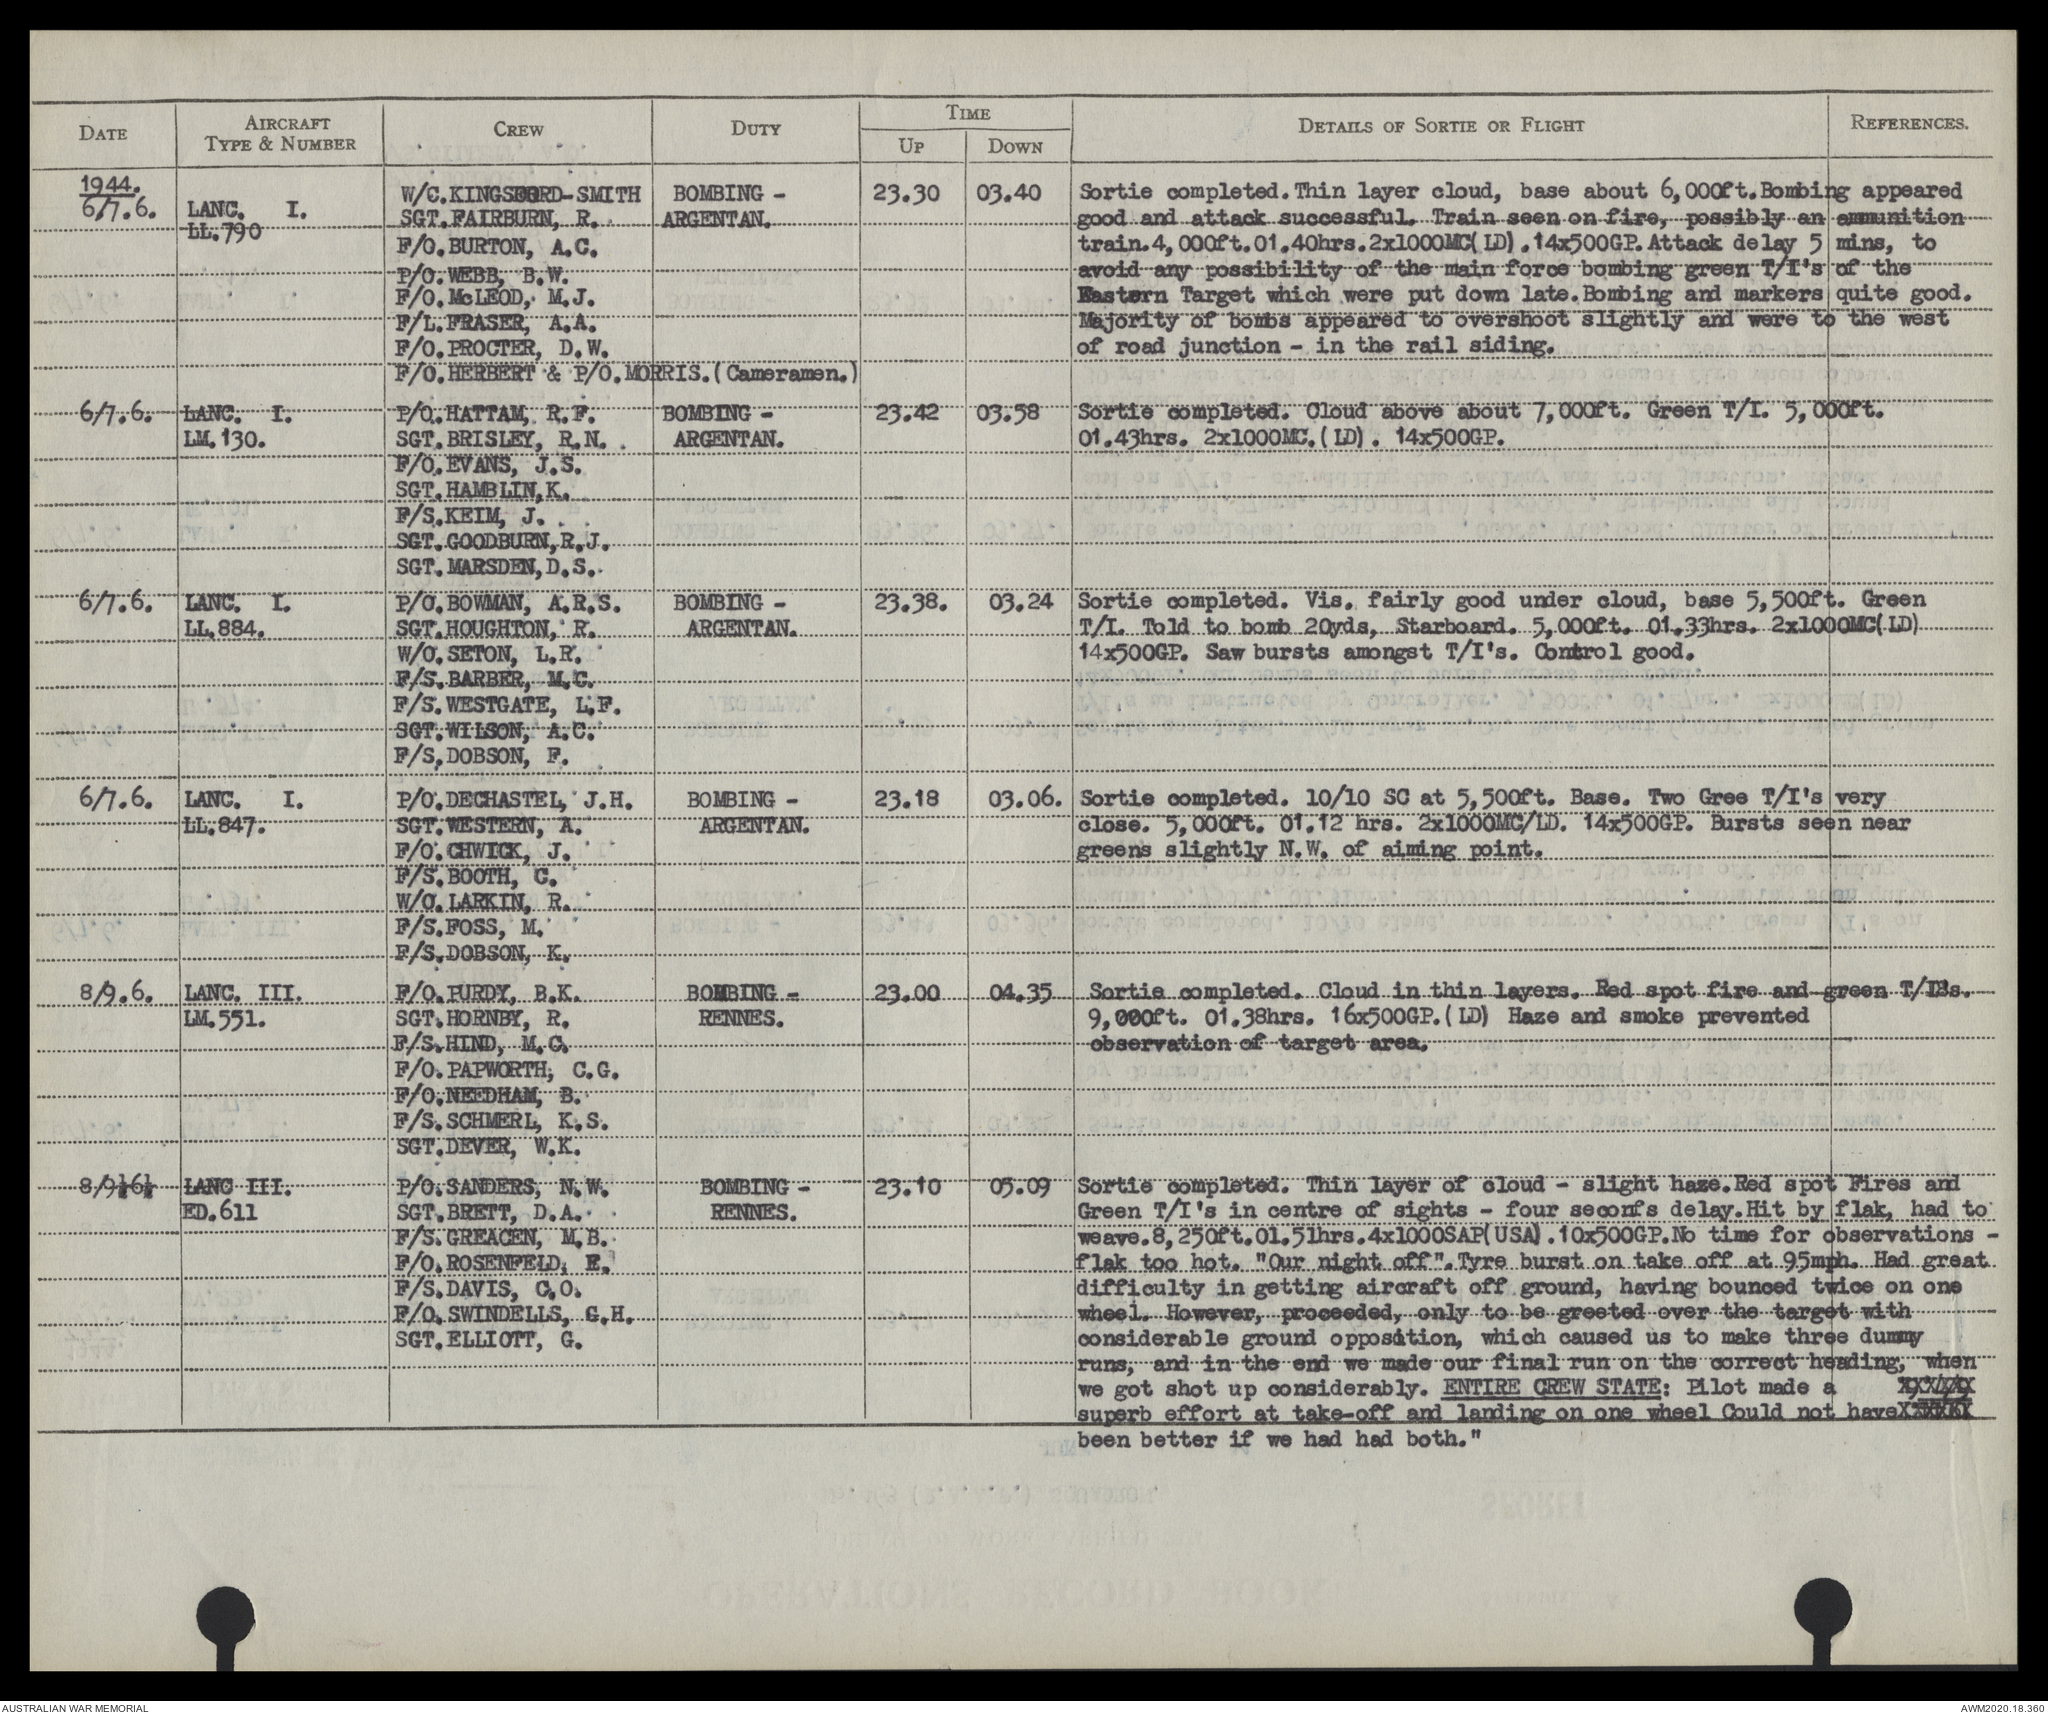 DATE AIRCRAFT TYPE & NUMBER CREW DUTY TIME UP DOWN DETAILS OF SORTIE OR FLIGHT REFERENCES.
1944.
6/7.6. LANC. I. W/C.KINGSFORD-SMITH BOMBING - 23.30 03.40 Sortie completed.Thin layer cloud, base about 6,000ft.Bombing appeared
LL.790 SGT.FAIRBURN, R. ARGENTAN. good and attack successful. Train seen on fire, possibly an ammunition
F/O.BURTON, A.C. train.4,000ft.01.40hrs.2x1000MC(LD).14x500GP.Attack delay 5 mins, to
P/O.WEBB, B.W. avoid any possibility of the main force bombing green T/I's of the
F/O.McLEOD, M.J. Eastern Target which were put down late.Bombing and markers quite good.
F/L.FRASER, A.A. Majority of bombs appeared to overshoot slightly and were to the west
F/O.PROCTER, D.W. of road junction - in the rail siding.
F/O.HERBERT & P/O.MORRIS.(Cameramen.)
6/7.6. LANC. I. P/O.HATTAM, R.F. BOMBING - 23.42 03.58 Sortie completed. Cloud above about 7,000ft. Green T/I. 5,000ft.
LM.130. SGT.BRISLEY, R.N. ARGENTAN. 01.43hrs. 2x1000MC.(LD). 14x500GP.
F/O.EVANS, J.S.
SGT.HAMBLIN,K.
F/S.KEIM, J.
SGT.GOODBURN,R.J.
SGT.MARSDEN,D.S.
6/7.6. LANC. I. P/O.BOWMAN, A.R.S. BOMBING - 23.38. 03.24 Sortie completed. Vis. fairly good under cloud, base 5,500ft. Green
LL.884. SGT.HOUGHTON, R. ARGENTAN. T/I. Told to bomb 20yds, Starboard. 5,000ft. 01.33hrs. 2x1000MC(LD)
W/O.SETON, L.R. 14x500GP. Saw bursts amongst T/I's. Control good.
F/S.BARBER, M.C.
F/S.WESTGATE, L.F.
SGT.WILSON, A.C.
F/S.DOBSON, F.
6/7.6. LANC. I. P/O.DECHASTEL, J.H. BOMBING - 23.18 03.06. Sortie completed. 10/10 SC at 5,500ft. Base. Two Gree T/I's very
LL.847. SGT.WESTERN, A. ARGENTAN. close. 5,000ft. 01.12 hrs. 2x1000MC/LD. 14x500GP. Bursts seen near
F/O.CHWICK, J. greens slightly N.W. of aiming point.
F/S.BOOTH, C.
W/O.LARKIN, R.
F/S.FOSS, M.
F/S.DOBSON, K.
8/9.6. LANC. III. F/O.PURDY, B.K. BOMBING - 23.00 04.35 Sortie completed. Cloud in thin layers. Red spot fire and green T/I's.
LM.551. SGT.HORNBY, R. RENNES. 9,000ft. 01.38hrs. 16x500GP.(LD) Haze and smoke prevented
F/S.HIND, M.C. observation of target area.
F/O.PAPWORTH, C.G.
F/O.NEEDHAM, B.
F/S.SCHMERL, K.S.
SGT.DEVER, W.K.
8/9½6½ LANC III. P/O.SANDERS, N.W. BOMBING - 23.10 05.09 Sortie completed. Thin layer of cloud - slight haze.Red spot Fires and
ED.611 SGT.BRETT, D.A. RENNES. Green T/I's in centre of sights - four seconfs delay.Hit by flak, had to
F/S.GREACEN, M.B. weave.8,250ft.01.51hrs.4x1000SAP(USA).10x500GP.No time for observations -
F/O.ROSENFELD, E. flak too hot. "Our night off".Tyre burst on take off at 95mph. Had great
F/S.DAVIS, C.O. difficulty in getting aircraft off ground, having bounced twice on one
F/O.SWINDELLS, G.H. wheel. However, proceeded, only to be greeted over the target with
SGT.ELLIOTT, G. considerable ground opposition, which caused us to make three dummy
runs, and in the end we made our final run on the correct heading, when
we got shot up considerably. ENTIRE CREW STATE: Pilot made a
superb effort at take-off and landing on one wheel Could not have
been better if we had had both."
AUSTRALIAN WAR MEMORIAL AWM2020.18.360